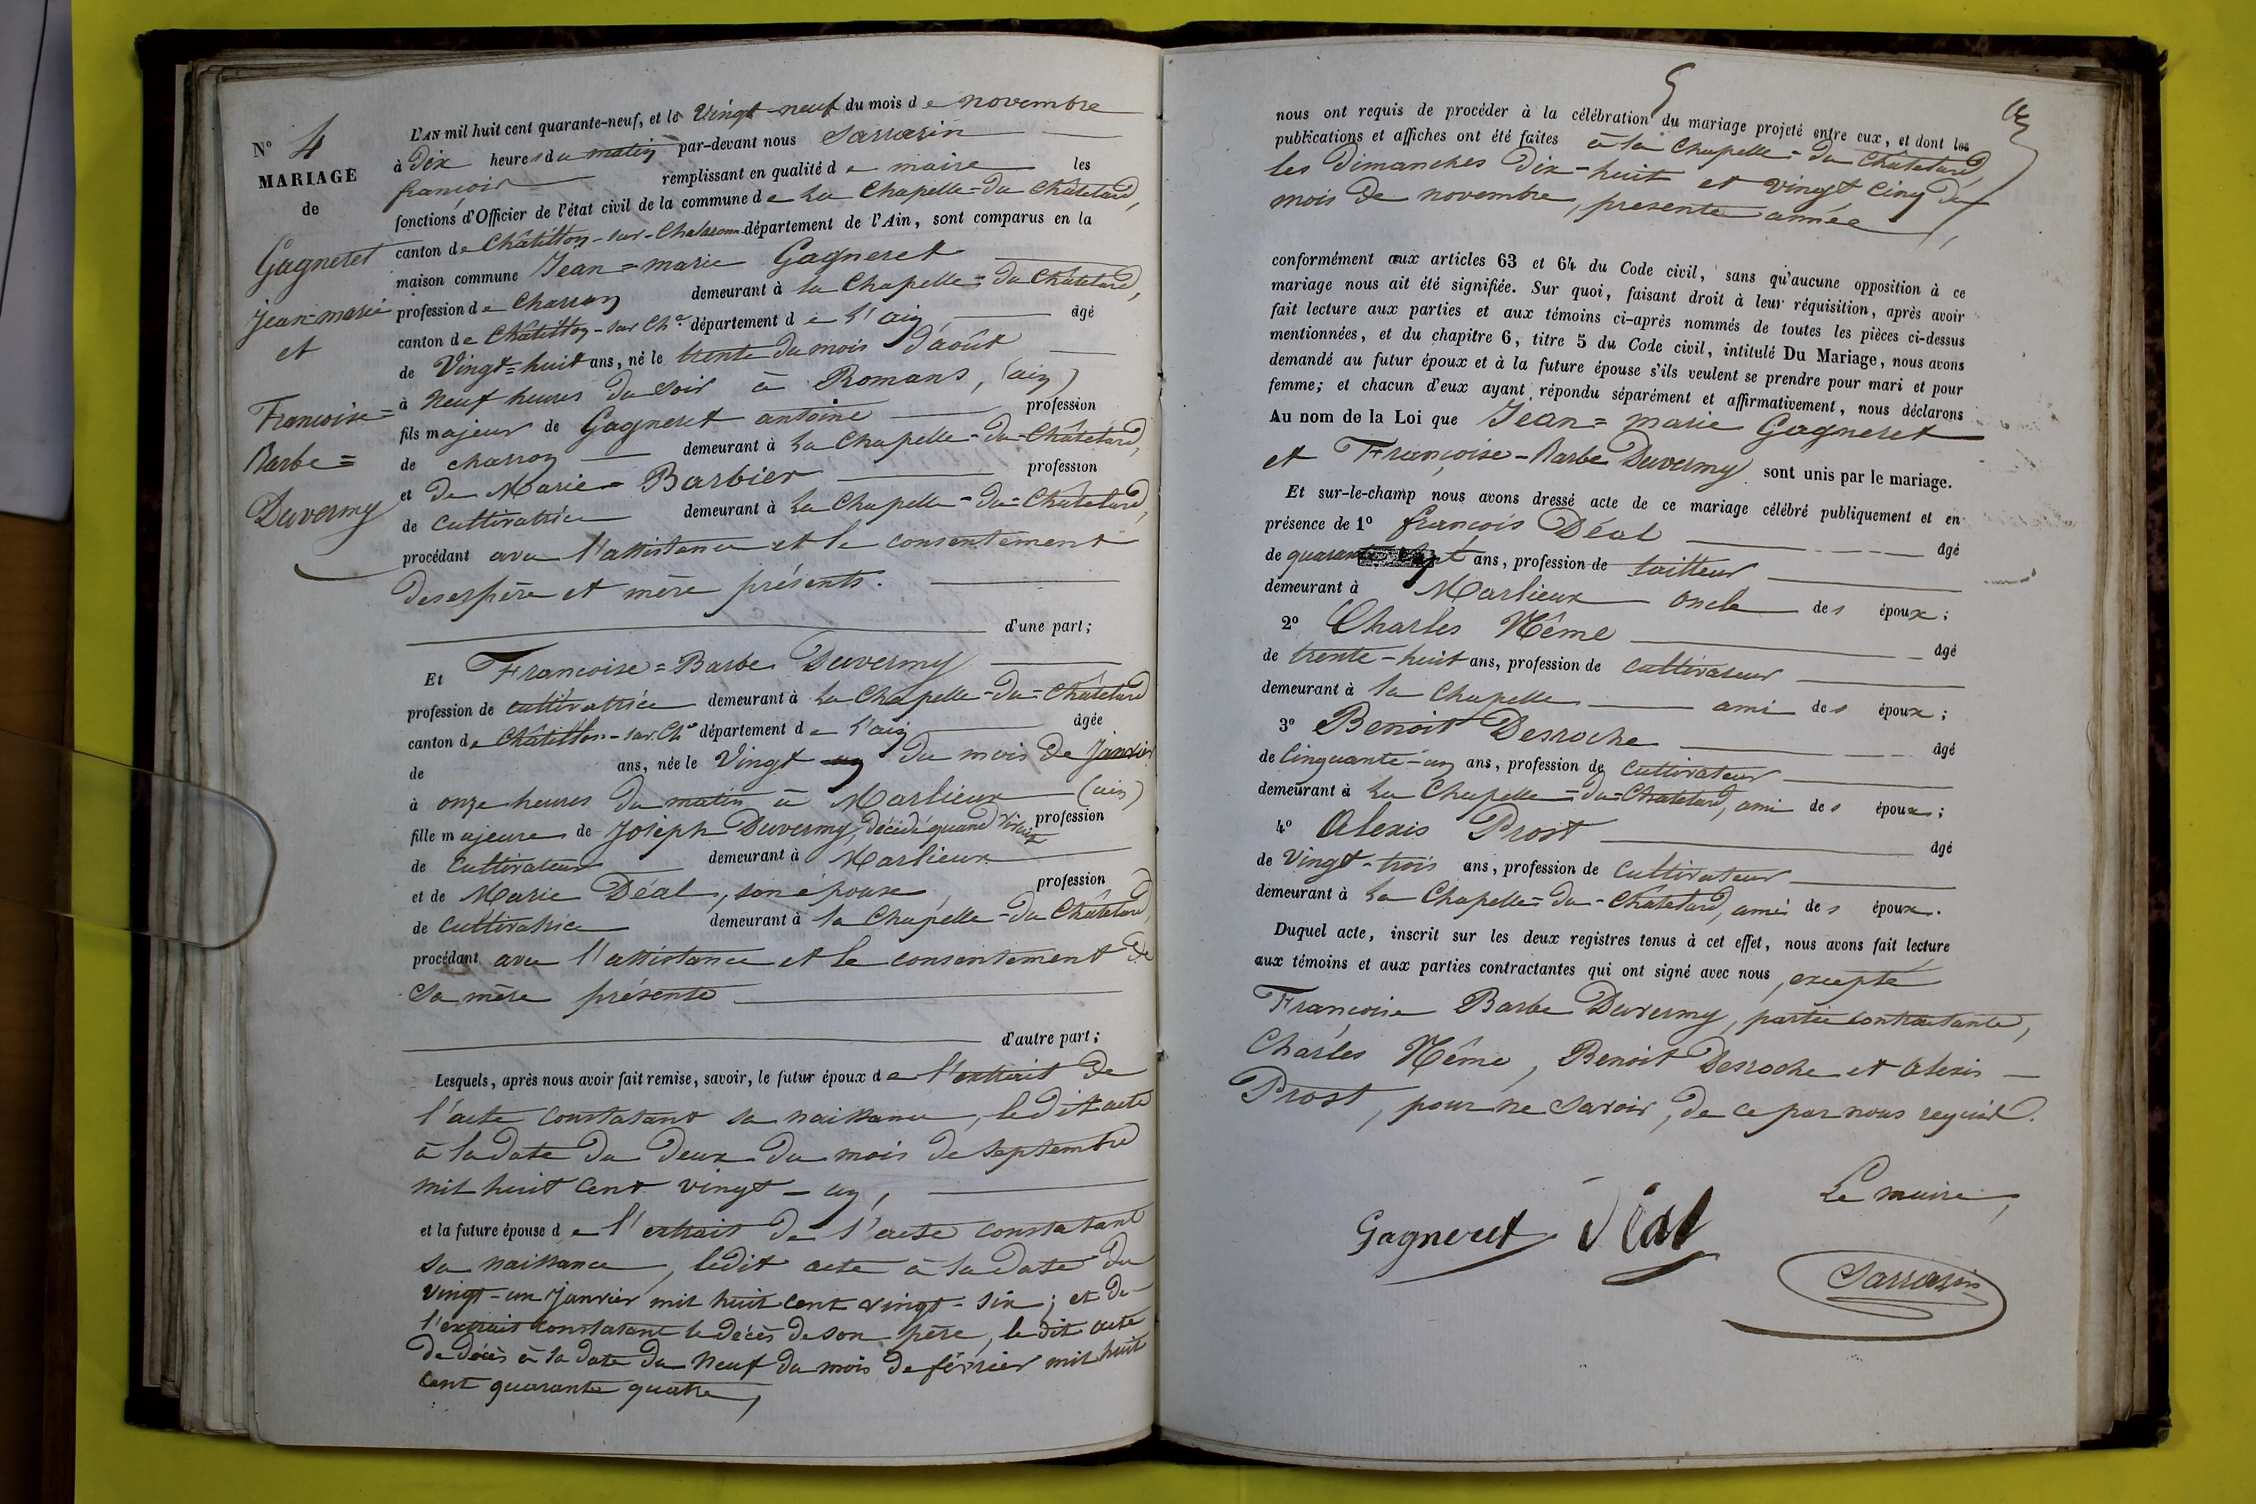 N° 4
MARIAGE
de
Gagneret
Jean=marie
et
Francoise=
Barbe=
Duvermy
L'AN mil huit cent quarante-neuf, et le Vingt-neuf du mois de novembre
à dix heures du matin par-devant nous Sarrasin
françois remplissant en qualité de maire les
fonctions d'Officier de l'état civil de la commune de La Chapelle=du Châtelard,
canton de Châtillon-sur-Chalaronne département de l'Ain, sont comparus en la
maison commune Jean=marie Gagneret
profession de Charron demeurant à la Chapelle=du Châtelard,
canton de Châtillon-sur Ch.e département de l'ain, âgé
de Vingt=huit ans, né le trente du mois d'août
à neuf heures du soir à Romans, (ain)
fils majeur de Gagneret antoine profession
de charron demeurant à La Chapelle-du-Châtelard,
et de Marie Barbier profession
de cultivatrice demeurant à La Chapelle-du=Châtelard,
procédant avec l'assistance et le consentement
de ses père et mère présents.
d'une part;
Et Francoise=Barbe Duvermy
profession de cultivatrice demeurant à La Chapelle-du=Châtelard
canton de Châtillon-sur Ch.e département de l'ain âgée
de ans, née le Vingt un du mois de Janvier
à onze heures du matin à Marlieux (ain)
fille majeure de Joseph Duvermy, décédé quand vivait profession
de Cultivateur demeurant à Marlieux
et de Marie Déal, son épouse, profession
de cultivatrice demeurant à la Chapelle-du Châtelard,
procédant avec l'assistance et le consentement de
sa mère présente
d'autre part;
Lesquels, après nous avoir fait remise, savoir, le futur époux de l'extrait de
l'acte constatant sa naissance, ledit acte
à la date du deux du mois de septembre
mil huit cent vingt-un,
et la future épouse de l'extrait de l'acte constatant
sa naissance, ledit acte à la date du
vingt-un janvier mil huit cent vingt-six; et de
l'extrait constatant le décès de son père, le dit acte
de décès à la date du neuf du mois de février mil huit
cent quarante quatre,
nous ont requis de procéder à la célébration du mariage projeté entre eux, et dont les
publications et affiches ont été faites à la Chapelle-du Châtelard,
les dimanches dix-huit et vingt cinq du
mois de novembre, présente année,
conformément aux articles 63 et 64 du Code civil, sans qu'aucune opposition à ce
mariage nous ait été signifiée. Sur quoi, faisant droit à leur réquisition, après avoir
fait lecture aux parties et aux témoins ci-après nommés de toutes les pièces ci-dessus
mentionnées, et du chapitre 6, titre 5 du Code civil, intitulé Du Mariage, nous avons
demandé au futur époux et à la future épouse s'ils veulent se prendre pour mari et pour
femme; et chacun d'eux ayant répondu séparément et affirmativement, nous déclarons
Au nom de la Loi que Jean=marie Gagneret
et Françoise-Barbe Duvermy sont unis par le mariage.
Et sur-le-champ nous avons dressé acte de ce mariage célébré publiquement et en
présence de 1° françois Déal âgé
de quarante sept ans, profession de tailleur
demeurant à Marlieux oncle des époux;
2° Charles Nême âgé
de trente-huit ans, profession de cultivateur
demeurant à la Chapelle ami des époux;
3° Benoit Desroche âgé
de Cinquante-un ans, profession de cultivateur
demeurant à La Chapelle=du=Châtelard, ami des époux;
4° Alexis Prost âgé
de Vingt-trois ans, profession de cultivateur
demeurant à La Chapelle=du-Châtelard, ami des époux.
Duquel acte, inscrit sur les deux registres tenus à cet effet, nous avons fait lecture
aux témoins et aux parties contractantes qui ont signé avec nous, excepté
Françoise Barbe Duvermy, partie contractante,
Charles Nême, Benoit Desroche et alexis
Prost, pour ne savoir, de ce par nous requis.
Le maire,
Gagneret Déal
Sarrasin